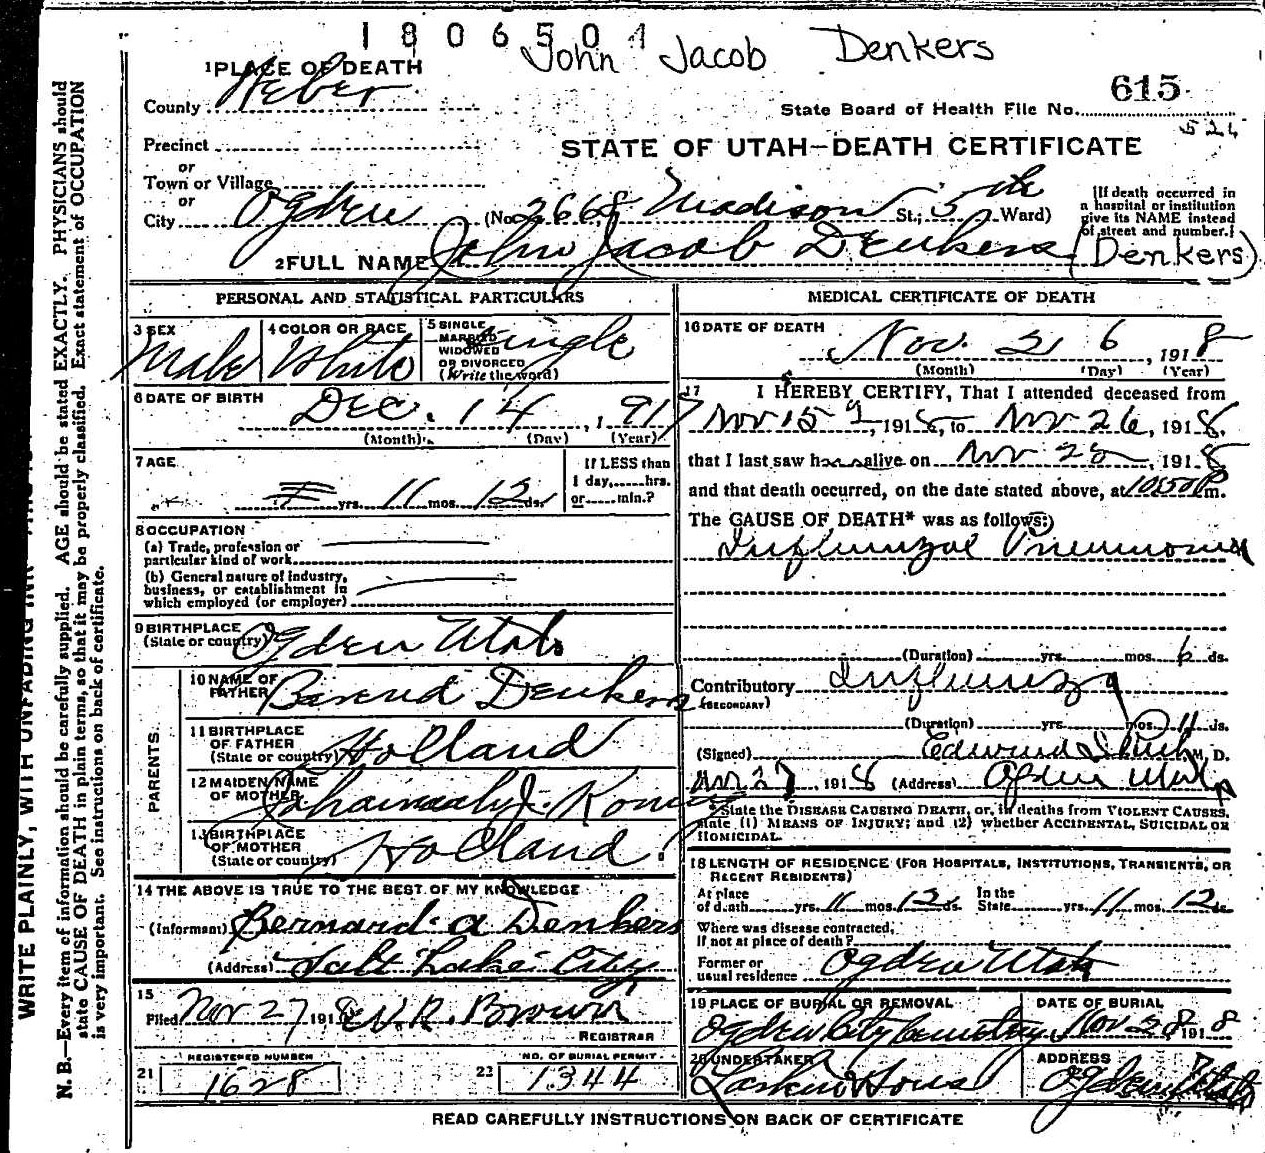 1806501
John Jacob Denkers
1 PLACE OF DEATH
County Weber
State Board of Health File No. 615
526
Precinct
STATE OF UTAH—DEATH CERTIFICATE
or
Town or Village
or
City Ogden (No. 2668 Madison St.; 5th Ward)
[If death occurred in
a hospital or institution
give its NAME instead
of street and number.]
2 FULL NAME John Jacob Denkers (Denkers)
PERSONAL AND STATISTICAL PARTICULARS
3 SEX Male
4 COLOR OR RACE White
5 SINGLE
MARRIED
WIDOWED
OR DIVORCED
(Write the word) Single
6 DATE OF BIRTH
Dec. 14, 1917
(Month) (Day) (Year)
7 AGE
yrs. 11 mos. 12 ds.
If LESS than
1 day,......hrs.
or......min.?
8 OCCUPATION
(a) Trade, profession or
particular kind of work
(b) General nature of industry,
business, or establishment in
which employed (or employer)
9 BIRTHPLACE
(State or country) Ogden Utah
PARENTS.
10 NAME OF
FATHER Berend Denkers
11 BIRTHPLACE
OF FATHER
(State or country) Holland
12 MAIDEN NAME
OF MOTHER J.
13 BIRTHPLACE
OF MOTHER
(State or country) Holland
14 THE ABOVE IS TRUE TO THE BEST OF MY KNOWLEDGE
(Informant) Bernard A Denkers
(Address) Salt Lake City
15
Filed Nov 27 1918 W. R. Brown
REGISTRAR
REGISTERED NUMBER
21 1628
NO. OF BURIAL PERMIT
22 1344
MEDICAL CERTIFICATE OF DEATH
16 DATE OF DEATH
Nov. 26, 1918
(Month) (Day) (Year)
17 I HEREBY CERTIFY, That I attended deceased from
Nov 15, 1918, to Nov 26, 1918,
that I last saw h alive on Nov, 1918
and that death occurred, on the date stated above, at 1050 P m.
The CAUSE OF DEATH* was as follows:
Influenzal Pneumonia
(Duration) yrs. mos. 6 ds.
Contributory Influenza
(SECONDARY)
(Duration) yrs. mos. 11 ds.
(Signed) Edward M. D.
Nov 27, 1918 (Address) Ogden Utah
*State the DISEASE CAUSING DEATH, or, in deaths from VIOLENT CAUSES,
state (1) MEANS OF INJURY; and (2) whether ACCIDENTAL, SUICIDAL OR
HOMICIDAL.
18 LENGTH OF RESIDENCE (FOR HOSPITALS, INSTITUTIONS, TRANSIENTS, OR
RECENT RESIDENTS)
At place
of death yrs. 11 mos. 12 ds.
In the
State yrs. 11 mos. 12 ds.
Where was disease contracted,
if not at place of death?
Former or
usual residence Ogden Utah
19 PLACE OF BURIAL OR REMOVAL
Ogden City Cemetery
DATE OF BURIAL
Nov 28 1918
20 UNDERTAKER
Larkin & Sons
ADDRESS
Ogden Utah
READ CAREFULLY INSTRUCTIONS ON BACK OF CERTIFICATE
WRITE PLAINLY, WITH UNFADING INK
N. B.—Every item of information should be carefully supplied. AGE should be stated EXACTLY. PHYSICIANS should
state CAUSE OF DEATH in plain terms, so that it may be properly classified. Exact statement of OCCUPATION
is very important. See instructions on back of certificate.